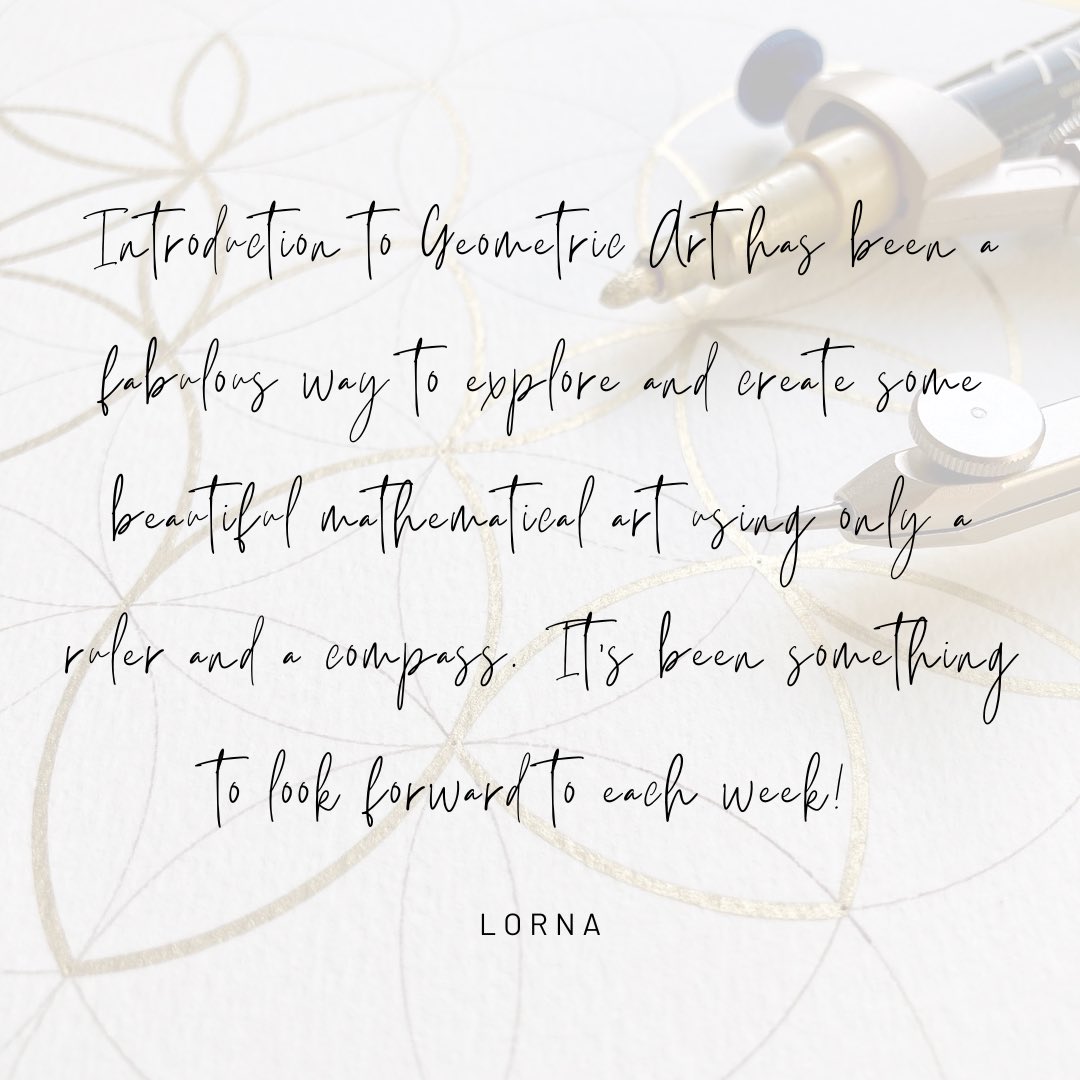 Introduction to Geometric Art has been a
fabulous way to explore and create some
beautiful mathematical art using only a
ruler and a compass. It's been something
to look forward to each week!
LORNA